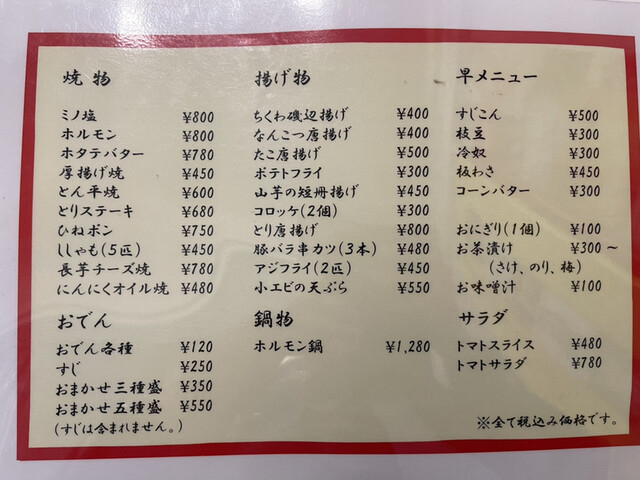 焼物
ミノ塩 ¥800
ホルモン ¥800
ホタテバター ¥780
厚揚げ焼 ¥450
とん平焼 ¥600
とりステーキ ¥680
ひねポン ¥750
ししゃも(5匹) ¥450
長芋チーズ焼 ¥780
にんにくオイル焼 ¥480
おでん
おでん各種 ¥120
すじ ¥250
おまかせ三種盛 ¥350
おまかせ五種盛 ¥550
(すじは含まれません。)
揚げ物
ちくわ磯辺揚げ ¥400
なんこつ唐揚げ ¥400
たこ唐揚げ ¥500
ポテトフライ ¥300
山芋の短冊揚げ ¥450
コロッケ(2個) ¥300
とり唐揚げ ¥800
豚バラ串カツ(3本) ¥480
アジフライ(2匹) ¥450
小エビの天ぷら ¥550
鍋物
ホルモン鍋 ¥1,280
早メニュー
すじこん ¥500
枝豆 ¥300
冷奴 ¥300
板わさ ¥450
コーンバター ¥300
おにぎり(1個) ¥100
お茶漬け ¥300～
(さけ、のり、梅)
お味噌汁 ¥100
サラダ
トマトスライス ¥480
トマトサラダ ¥780
※全て税込み価格です。